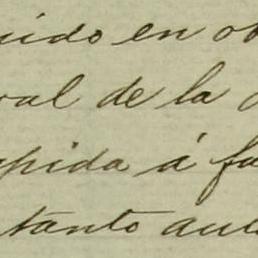 uido en ob
ral de la
apida á fa
tanto aun